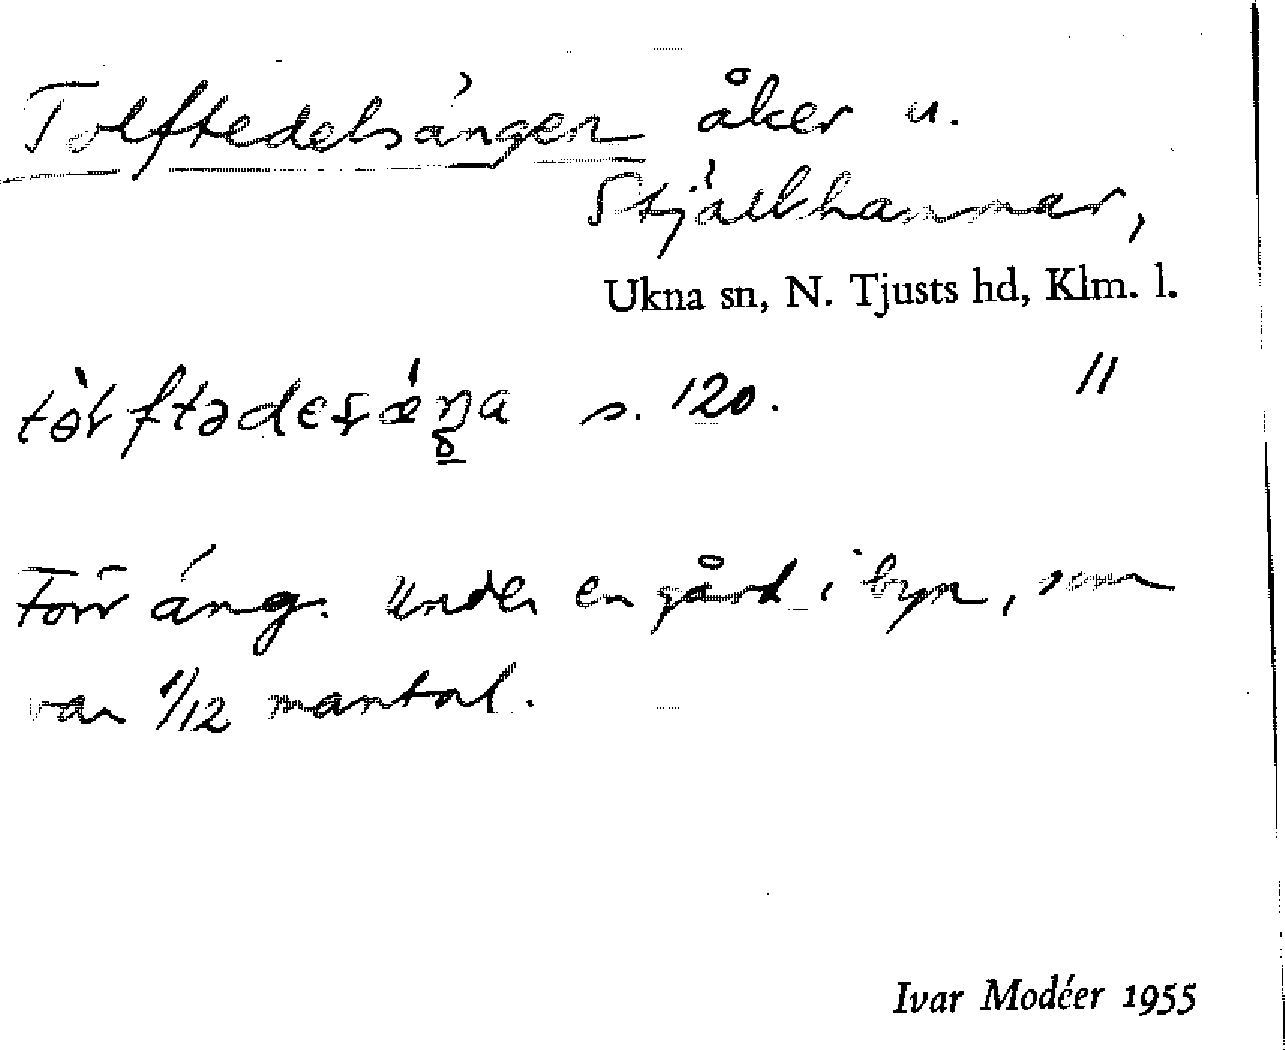 Tolftedelsängen åker u.
Stjälkhammar,
Ukna sn, N. Tjusts hd, Klm. l.
s. 120. "
Förr äng. Under en gård i byn, som
var 1/12 mantal.
Ivar Modéer 1955